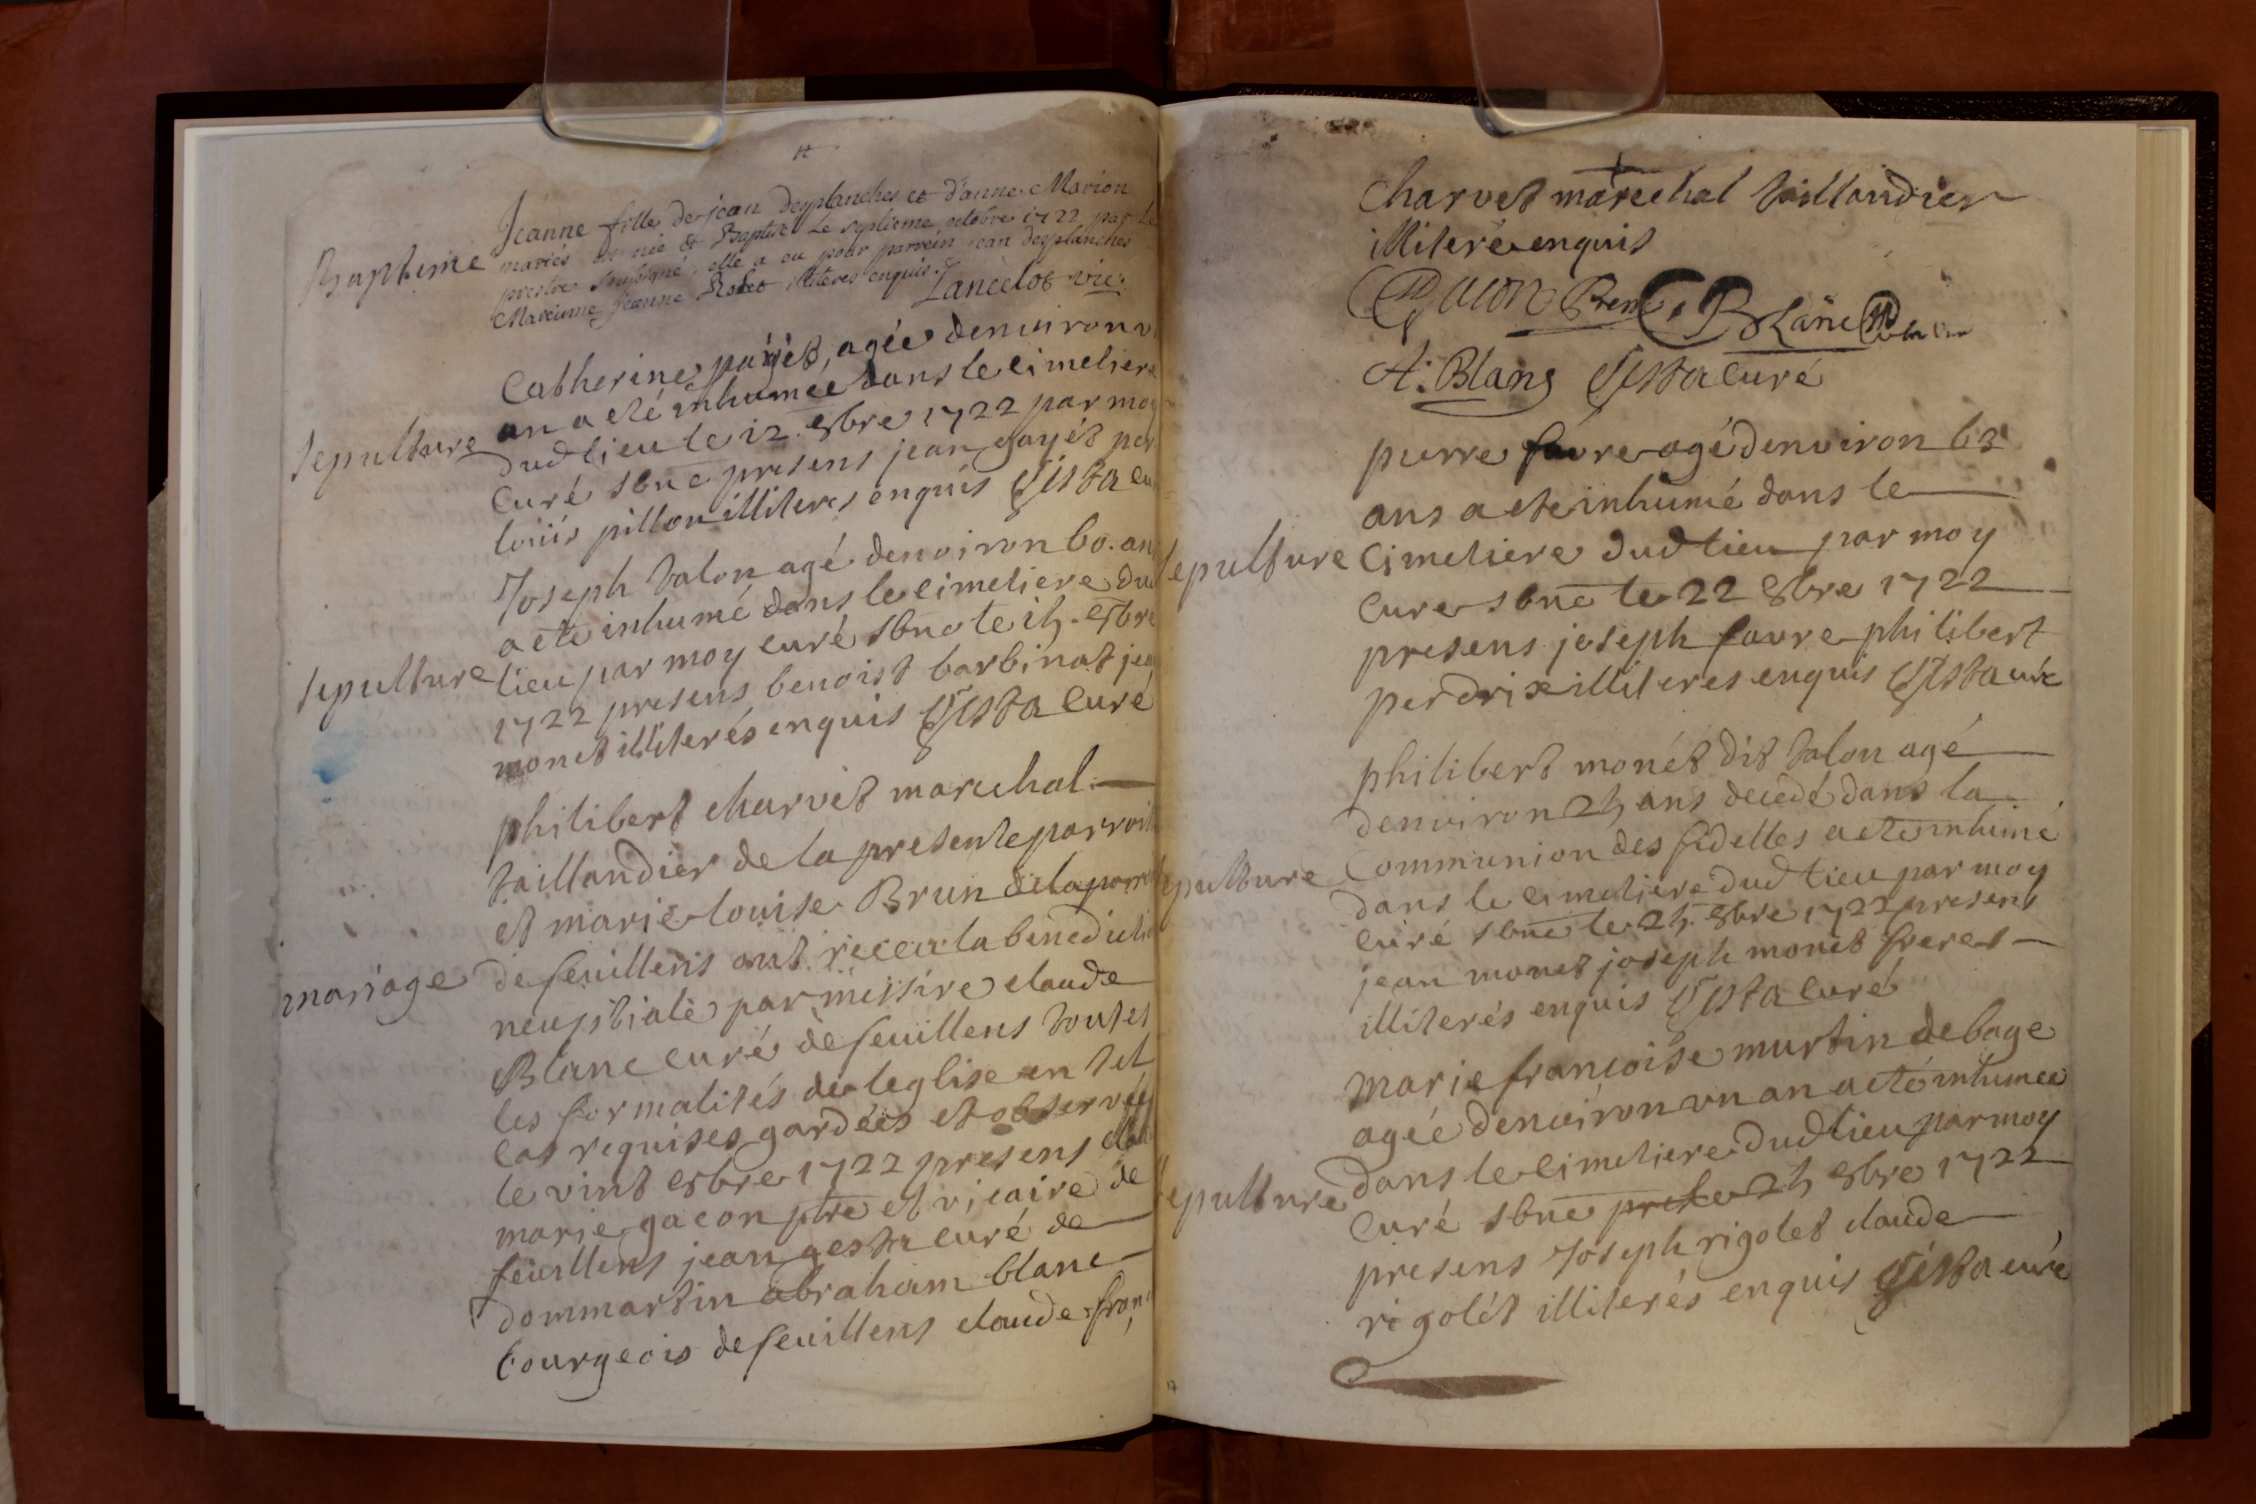 Baptême
Jeanne fille de jean Desplanches et d'anne Marion
mariés est née & Baptisée Le septieme octobre 1722 par le
prestre soubsigné, elle a eu pour parrein jean desplanches
Mareinne Jeanne illiteres enquis.
Lancelot vic:
sepulture
Catherine payét, agée denuiron v
an a eté inhumée dans le cimetiere
dud lieu le 12. 8bre 1722 par moy
Curé sbné presens jean payét per
louis pillon illiteres enquis Gesta cu
sepulture
Joseph talon agé denoiron 60. an
a ete inhumé dans le cimetiere dud
lieu par moy curé sbné le 15. 8bre
1722 presens benoist barbinat jean
monet illiterés enquis Gesta Curé
mariage
philibert charvet marechal
taillandier de la presente parroi
et marie louise Brun de la parr
de feuillens ont receu la benedictio
neuptiale par messire claude
Blanc curé de feuillens toutes
les formalités de leglise en tel
cas requises gardées et observées
le vint 8bre 1722 presens
marie gacon ptre et vicaire de
feuillens jean gesta curé de
dommartin abraham blanc
bourgeois de feuillens claude franc
Charvet marechal taillandier
illiteré enquis
Gacon Blanc
A: Blanc Gesta Curé
sepulture
pierre favre agé denviron 63
ans a ete inhumé dans le
Cimetiere dud lieu par moy
Cure sbné le 22 8bre 1722
presens joseph favre philibert
perdrix illiteres enquis Gesta curé
epulture
philibert monét dit talon agé
denuiron 25 ans decedé dans la
Communion des fidelles a eté inhumé
dans le cimetiere dud lieu par moy
curé sbné le 25. 8bre 1722 presens
jean monet joseph monet freres
illiterés enquis Gesta Curé
epulture
marie francoise murtin de bage
ageé denuiron un an a eté inhumée
dans le cimetiere dud lieu par moy
Curé sbné 25 8bre 1722
presens Joseph rigolet claude
rigolét illiterés enquis Gesta curé